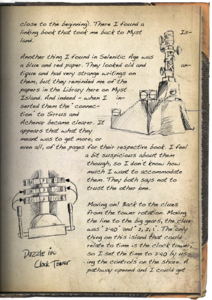 close to the beginning). There I found a
linking book that took me back to Myst
land.
Another thing I found in Selenitic Age was
a blue and red paper. They looked old and
figure and had very strange writings on
them, but they reminded me of the
papers in the Library here on Myst
Island. And indeed - when I in-
serted them the "connec-
tion" to Sirrus and
Achenar became clearer. It
appears that what they
meant was to get more, or
even all, of the pages for their respective book. I feel
a bit suspicious about them
though, so I don't know how
much I want to accommodate
them. They both says not to
trust the other one.
Moving on! Back to the clues
from the tower rotation. Moving
the line to the big gears, the clue
was "2:40" and "2, 2, 1". The only
thing on this island that could
relate to time is the clock tower,
so I set the time to 2:40 by us-
ing the controls on the shore. A
pathway opened and I could get
Puzzle in
Clock Tower